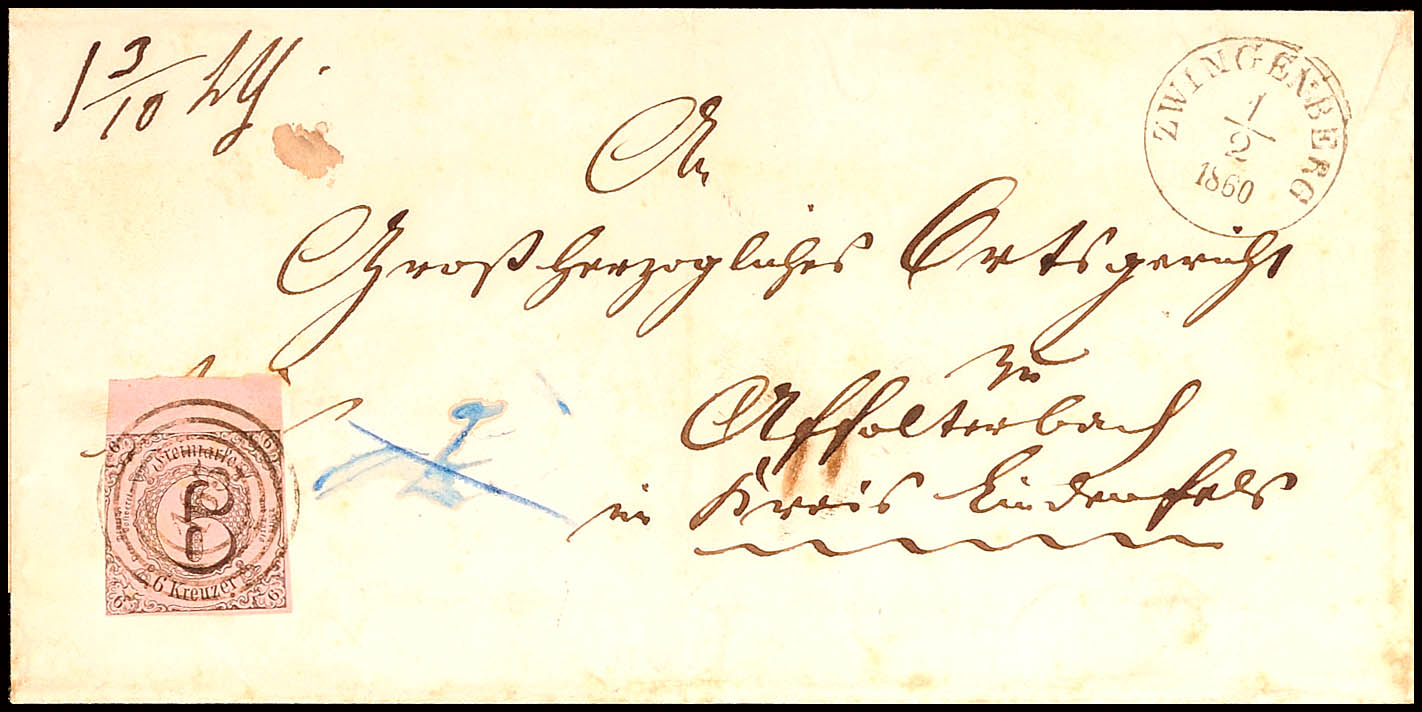 1 3/10 Lth.
ZWINGENBERG
1/2
1860
An
Großherzogliches Ortsgericht
zu
Affolterbach
in Kreis Lindenfels
Freimarke
6 Kreuzer
6
6
6
6